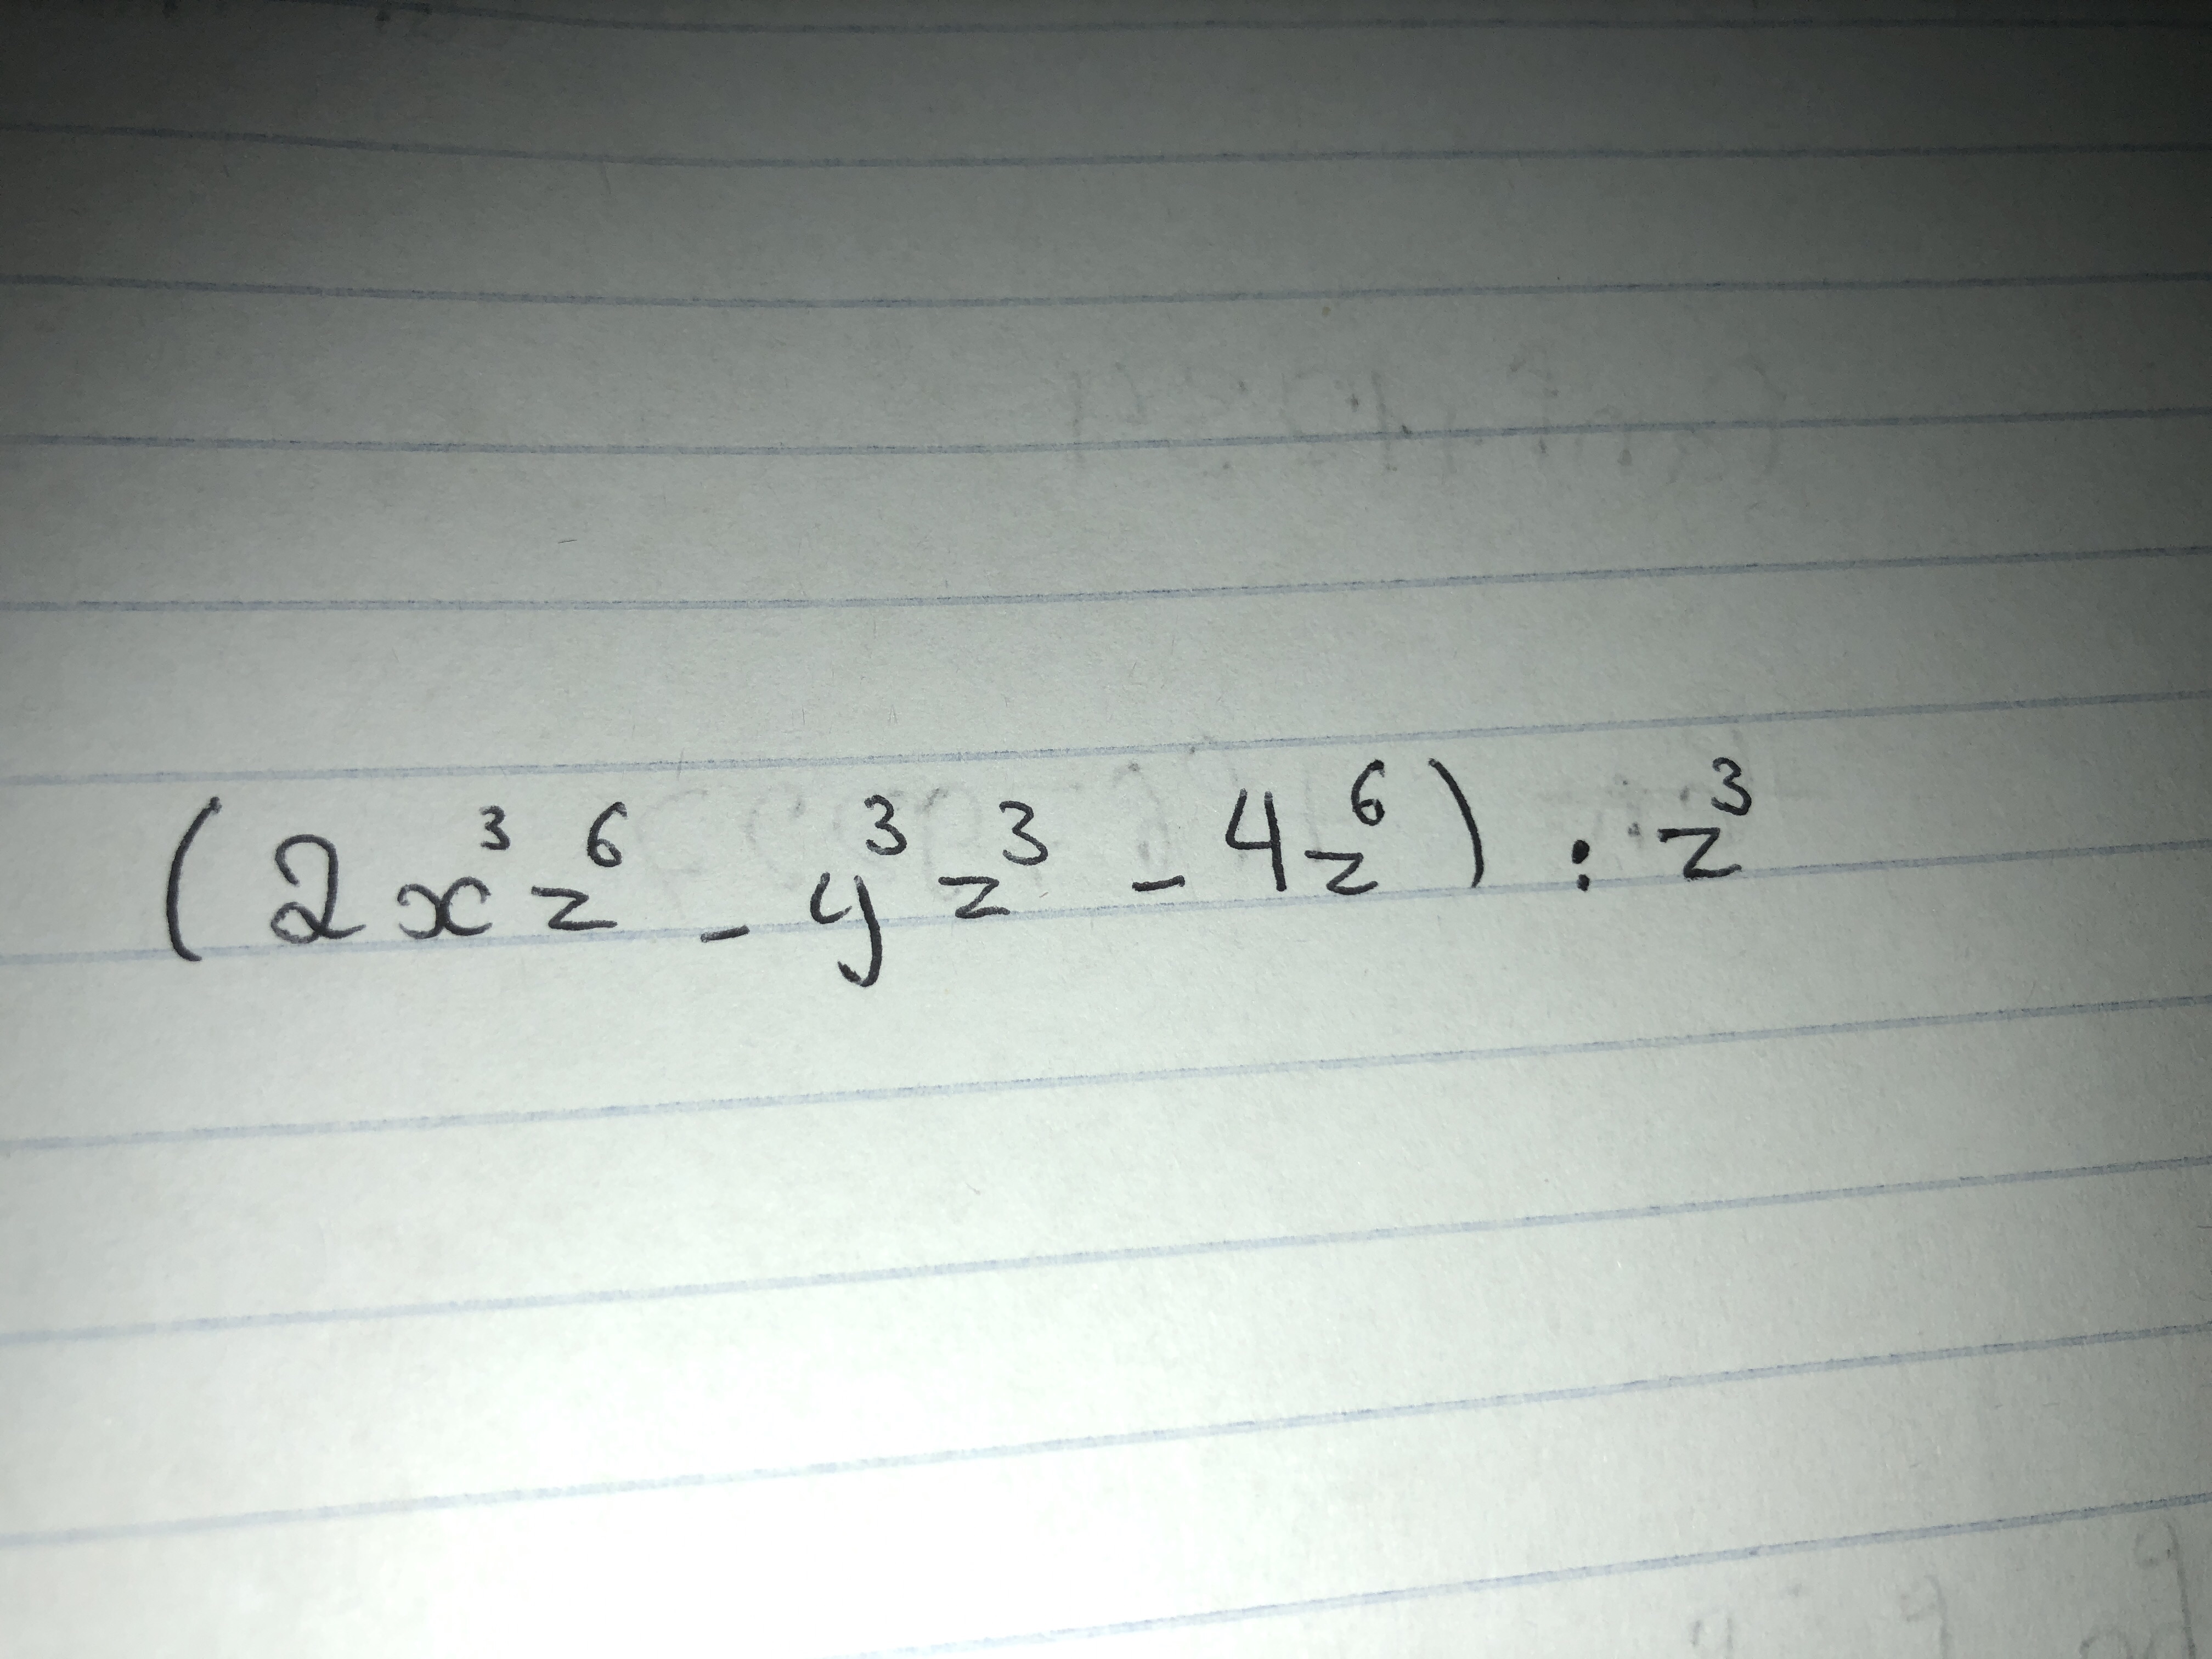 (2x³z⁶ - y³z³ - 4z⁶) : z³